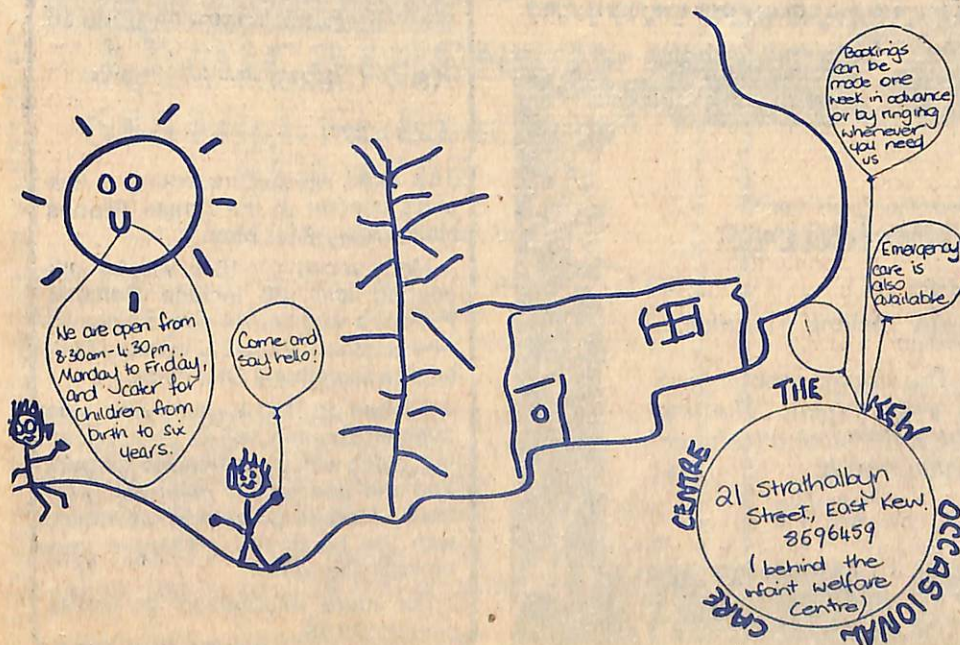 We are open from
8·30am-4·30pm,
Monday to Friday,
and cater for
Children from
birth to six
years.
Come and
say hello!
Bookings
can be
made one
week in advance
or by ringing
whenever
you need
us
Emergency
care is
also
available
THE KEW OCCASIONAL CARE CENTRE
21 Strathalbyn
Street, East Kew.
8596459
(behind the
infant welfare
Centre)